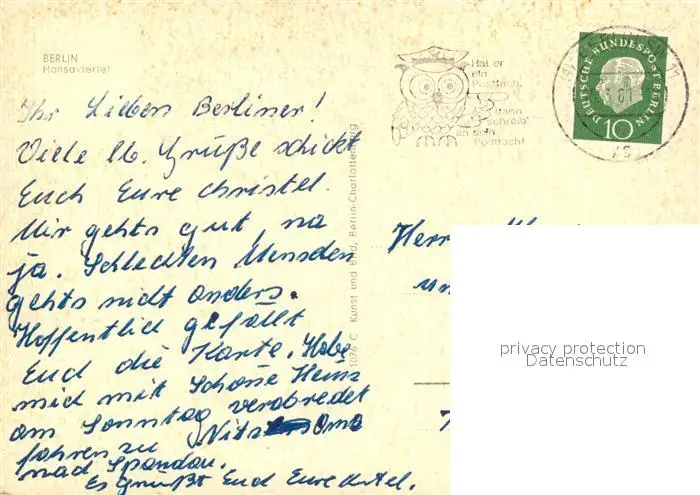 BERLIN
Hansaviertel
Ihr Lieben Berliner!
Viele lb. Grüße schickt
Euch Eure Christel.
Mir gehts gut, na
ja. Schlechten Menschen
gehts nicht anders.
Hoffentlich gefällt
Euch die Karte. Habe
mich mit Schöne Heinz
am Sonntag verabredet
fahren zu Oma
nach Spandau.
Es grüßt Euch Eure
1076 C Kunst und Bild, Berlin-Charlottenburg
Hat er
ein
Postfach,
dann
schreib'
an sein
Postfach!
DEUTSCHE BUNDESPOST BERLIN
10
Herr
un
privacy protection
Datenschutz